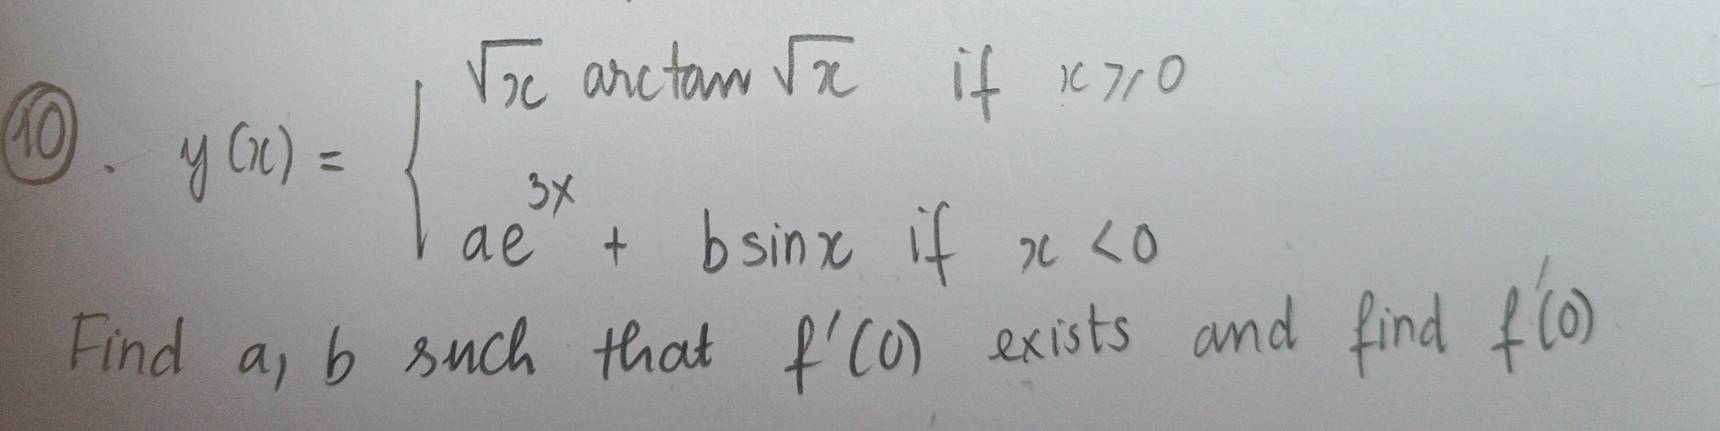 √x arctan √x if x ⩾ 0
⑩. y(x) = {
ae^{3x} + b sinx if x < 0
Find a, b such that f'(0) exists and find f'(0)